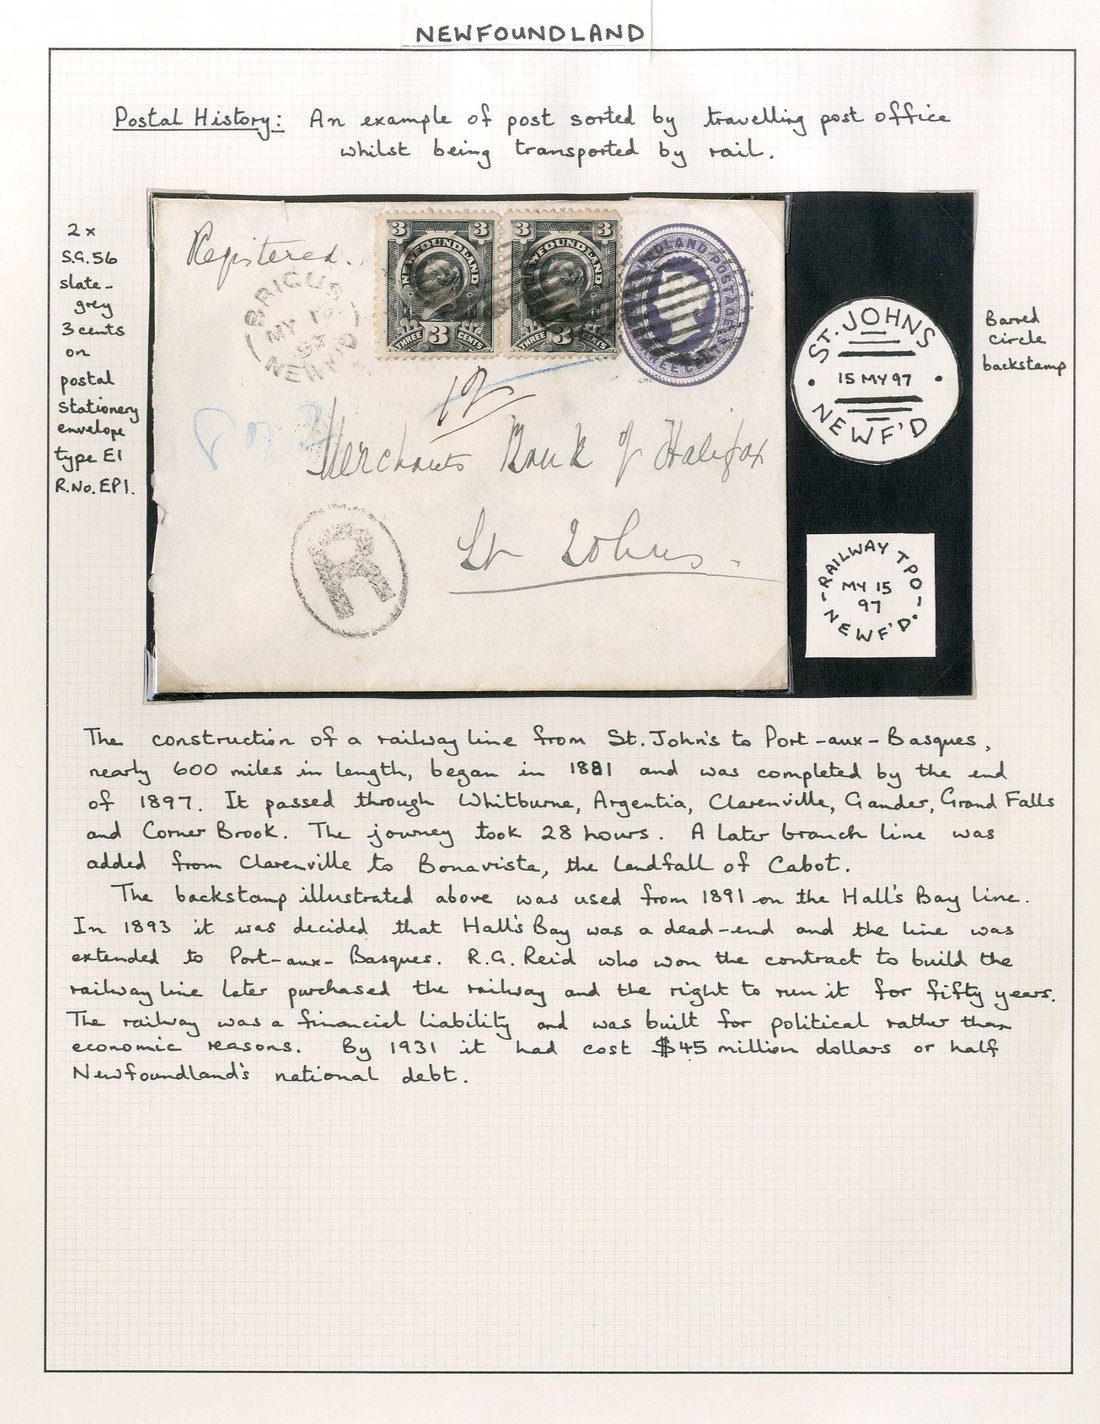 NEWFOUNDLAND
Postal History: An example of post sorted by travelling post office
whilst being transported by rail.
2 x
S.G. 56
slate-
grey
3 cents
on
postal
stationery
envelope
type E1
R.No. EP1.
Registered.
BRIGUS
MY
NEWF'D
3 3
NEWFOUNDLAND
THREE 3 CENTS
3 3
NEWFOUNDLAND
THREE 3 CENTS
NEWFOUNDLAND POSTAGE
THREE CENTS
12
Merchants Bank of Halifax
St Johns.
R
ST. JOHNS
15 MY 97
NEWF'D
Barred
circle
backstamp
RAILWAY TPO
MY 15
97
NEWF'D.
The construction of a railway line from St. John's to Port-aux-Basques,
nearly 600 miles in length, began in 1881 and was completed by the end
of 1897. It passed through Whitburne, Argentia, Clarenville, Gander, Grand Falls
and Corner Brook. The journey took 28 hours. A later branch line was
added from Clarenville to Bonavista, the landfall of Cabot.
The backstamp illustrated above was used from 1891 on the Hall's Bay line.
In 1893 it was decided that Hall's Bay was a dead-end and the line was
extended to Port-aux-Basques. R.G. Reid who won the contract to build the
railway line later purchased the railway and the right to run it for fifty years.
The railway was a financial liability and was built for political rather than
economic reasons. By 1931 it had cost $45 million dollars or half
Newfoundland's national debt.